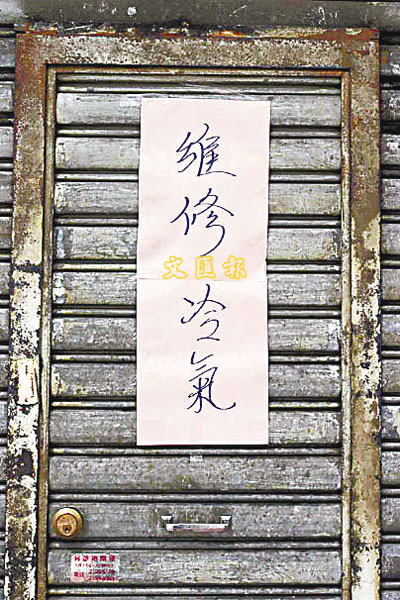 維修
冷氣
文匯報